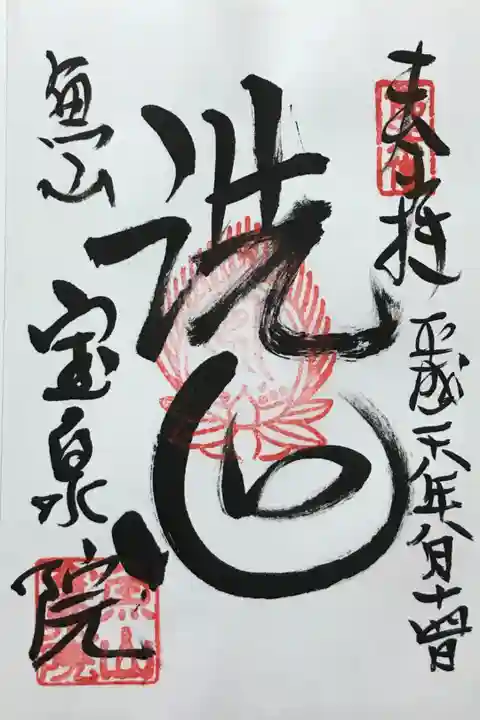 奉拝
平成年月十四日
洗心
魚山
宝泉院
魚山